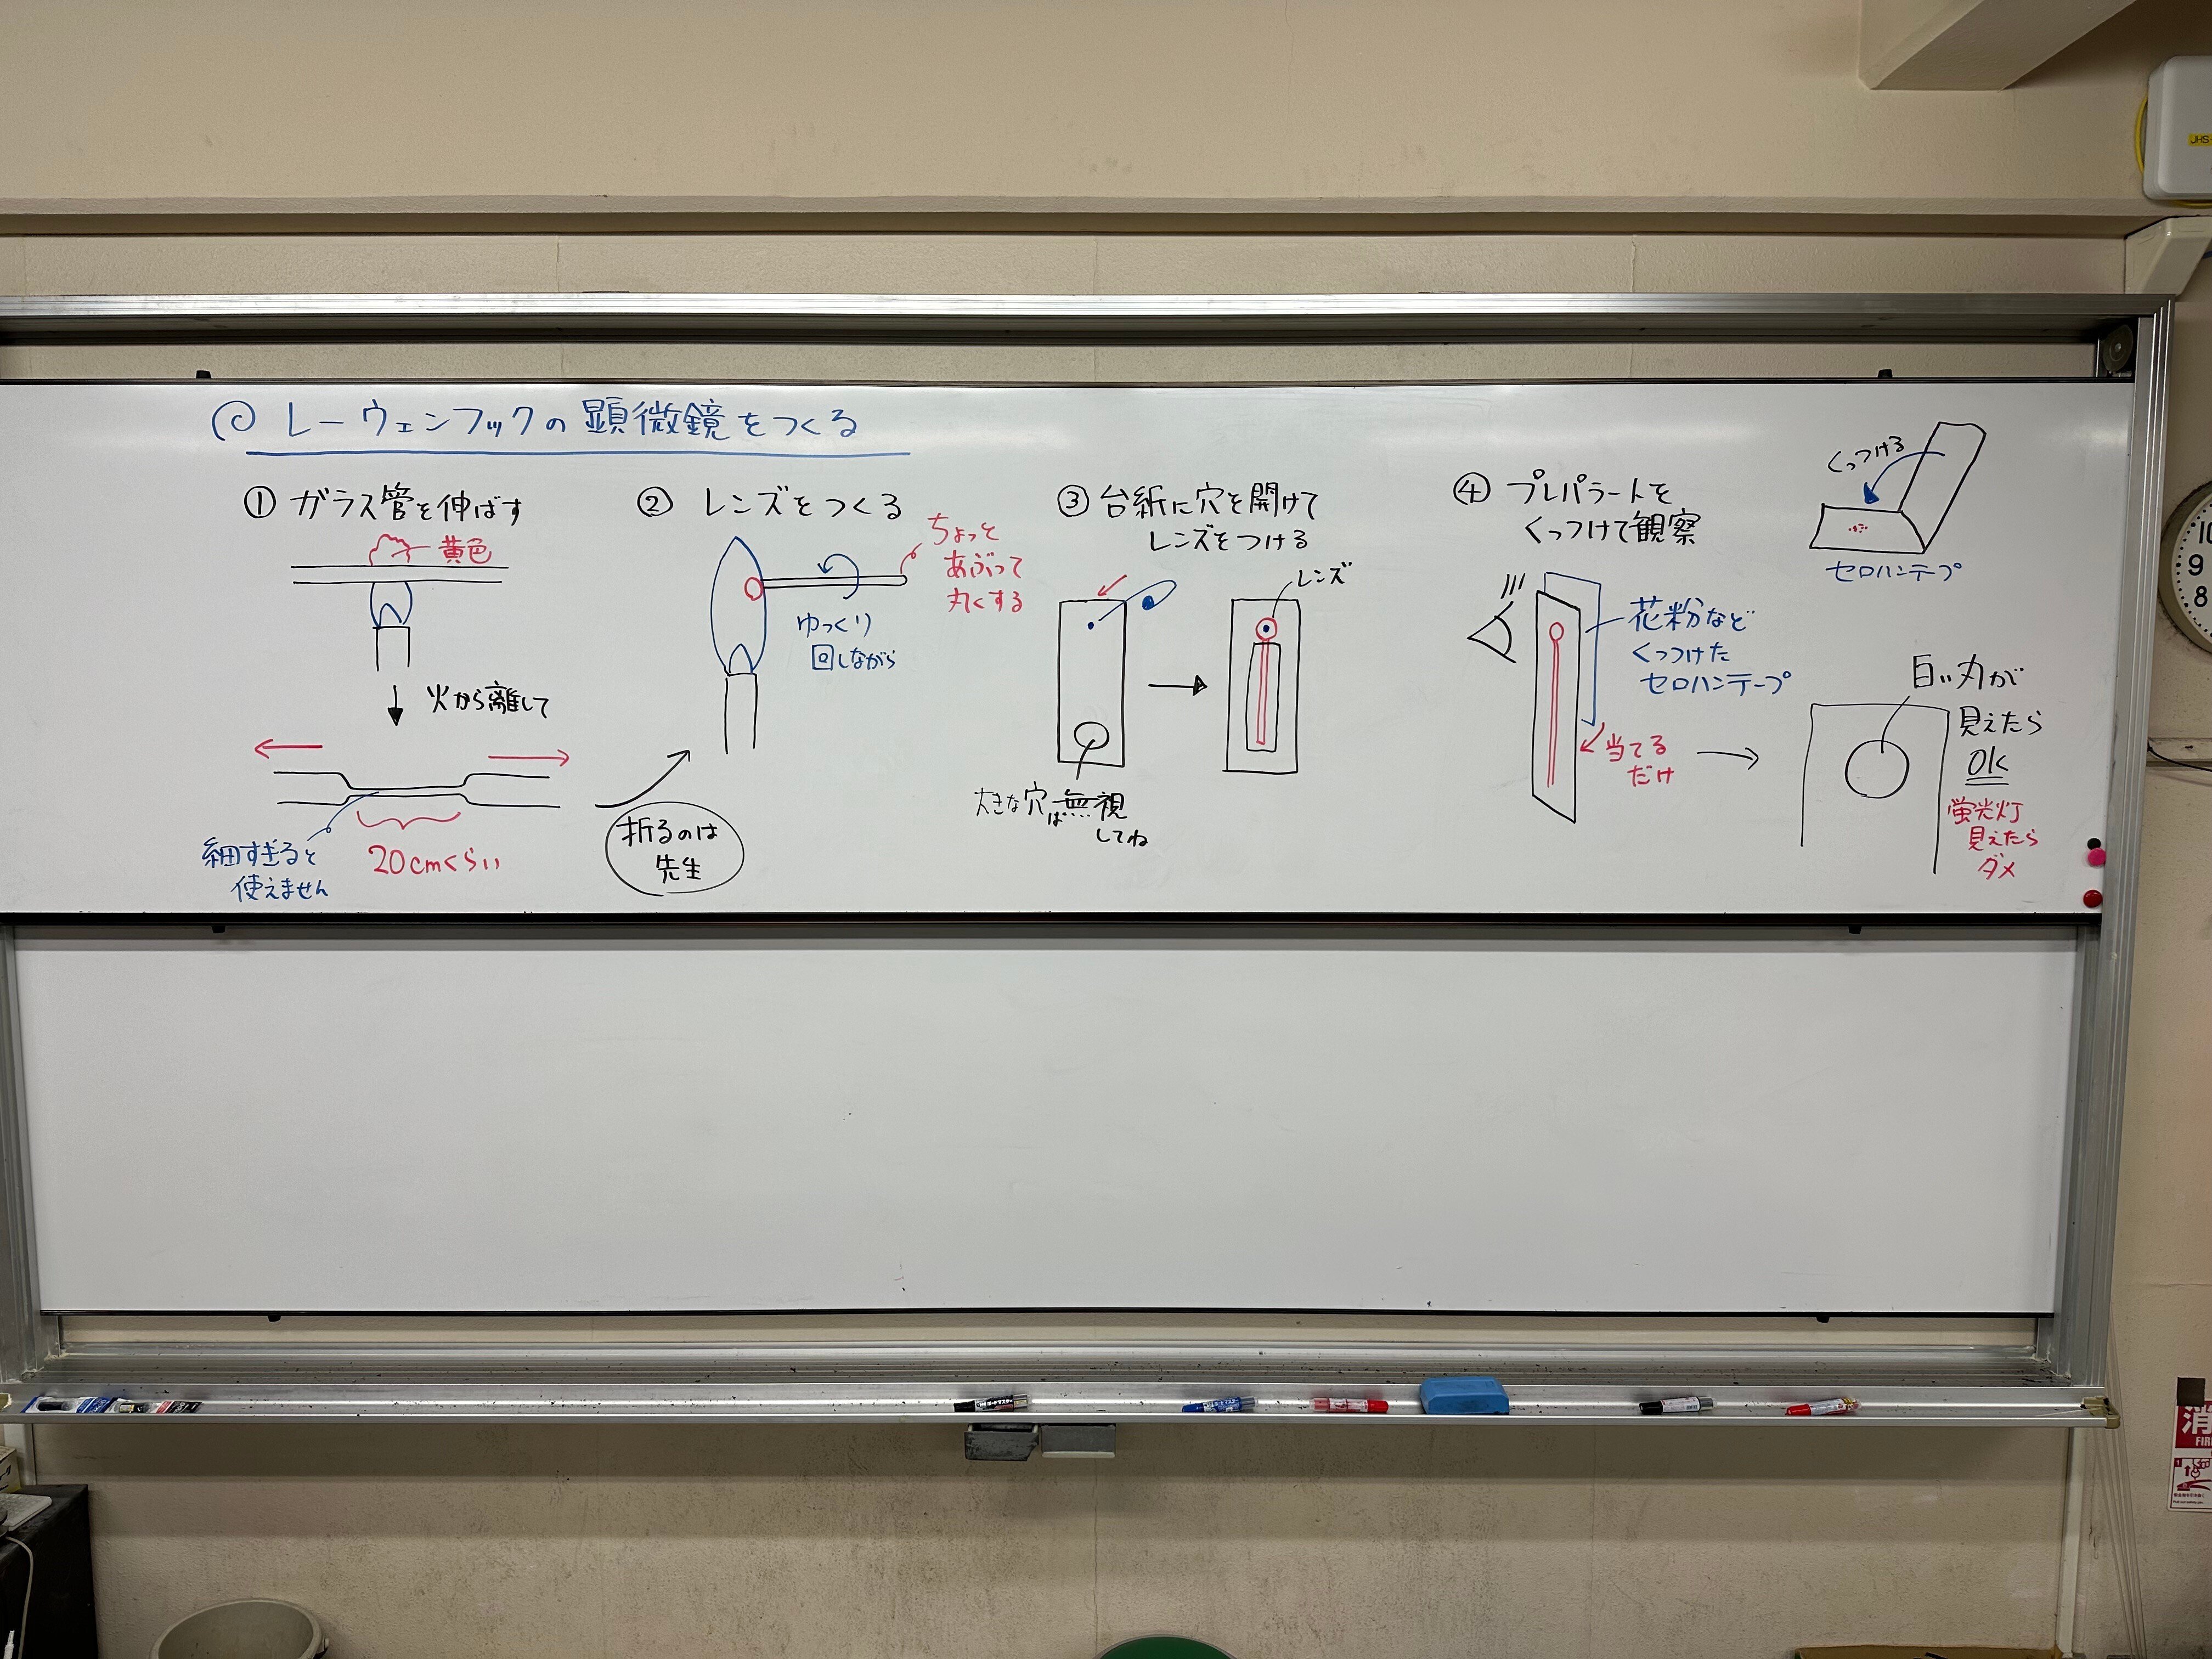 レーウェンフックの顕微鏡をつくる
① ガラス管を伸ばす
黄色
火から離して
細すぎると
使えません
20cmくらい
折るのは
先生
② レンズをつくる
ちょっと
あぶって
丸くする
ゆっくり
回しながら
③ 台紙に穴を開けて
レンズをつける
レンズ
大きな穴は無視
してね
④ プレパラートを
くっつけて観察
花粉など
くっつけた
セロハンテープ
当てる
だけ
くっつける
セロハンテープ
白い丸が
見えたら
OK
蛍光灯
見えたら
ダメ
10
9
8
JHS
消
FIR
1